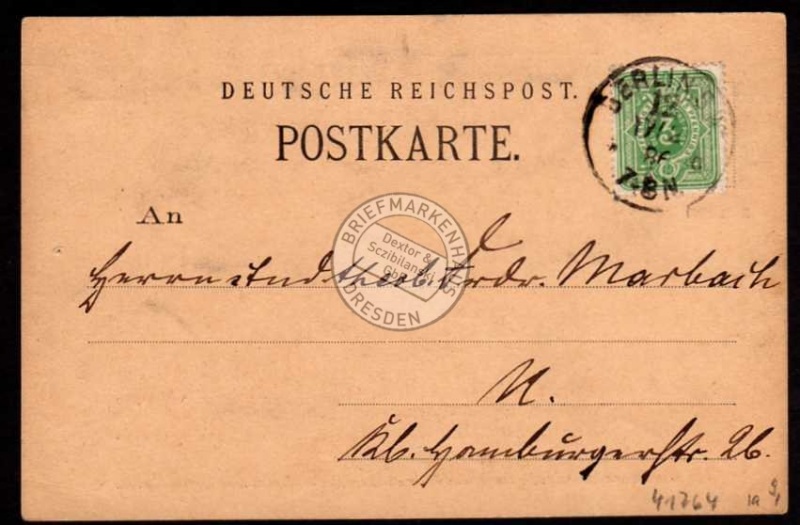 DEUTSCHE REICHSPOST.
POSTKARTE.
BERLIN N.
12
86
7-8N.
An
BRIEFMARKENHAUS
Dextor &
Sczibilanski
GbR
DRESDEN
Herrn stud theol. Frdr. Marbach
N.
Kl. Hamburgerstr. 26.
41764 1a